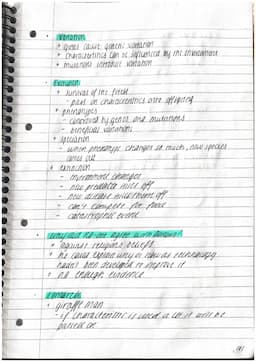 Variation
• genes cause genetic variation
• characteristics can be influenced by the environment
• mutations introduce variation
Evolution
• survival of the fittest
- pass on characteristics onto offspring
• phenotypes
- controlled by genes and mutations
- beneficial variations
• speciation
- when phenotype changes so much, new species
comes out
• extinction
- environment changes
- new predator kills off
- new disease kills them off
- can't compete for food
- catastrophic event
why did no one agree with Darwin
• against religious beliefs
• he could explain why or how as technology
hadn't been developed to improve it
• no enough evidence
Lamarck
• giraffe man
- if characteristic is used a lot it will be
passed on